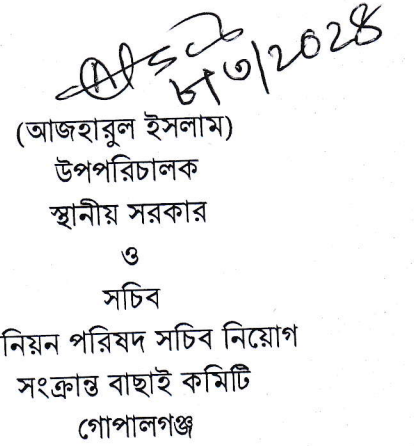 ৮/৩/২০২৪
(আজহারুল ইসলাম)
উপপরিচালক
স্থানীয় সরকার
ও
সচিব
নিয়ন পরিষদ সচিব নিয়োগ
সংক্রান্ত বাছাই কমিটি
গোপালগঞ্জ